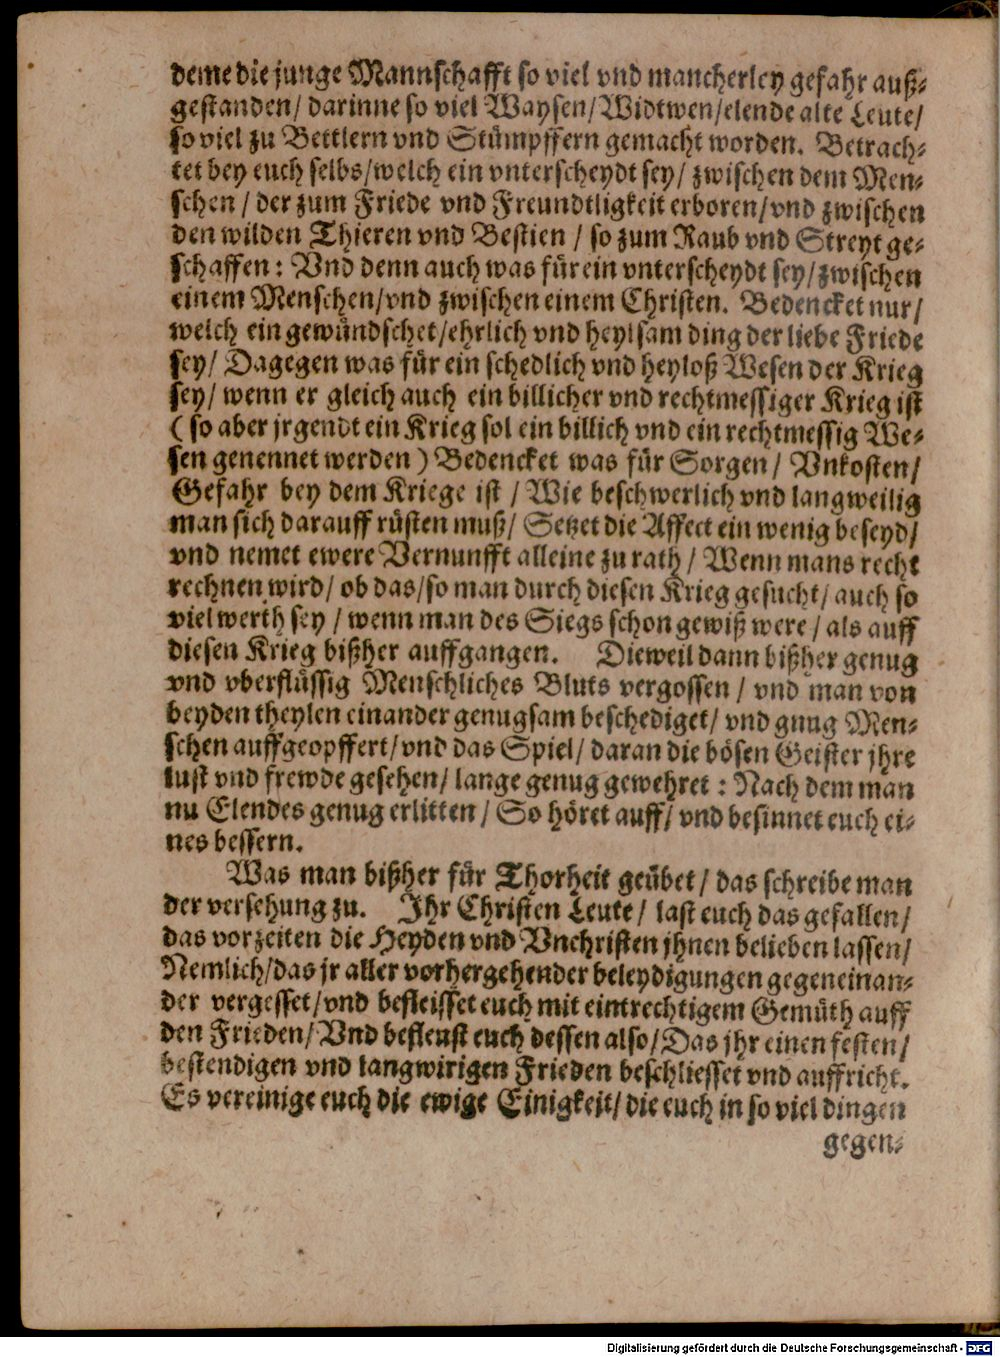 deme die junge Mannschafft so viel vnd mancherley gefahr auß⸗
gestanden/ darinne so viel Waysen/ Widtwen/ elende alte Leute/
so viel zu Bettlern vnd Stümpffern gemacht worden. Betrach⸗
tet bey euch selbs/ welch ein vnterscheydt sey/ zwischen dem Men⸗
schen / der zum Friede vnd Freundtligkeit erboren/ vnd zwischen
den wilden Thieren vnd Bestien / so zum Raub vnd Streyt ge⸗
schaffen: Vnd denn auch was für ein vnterscheydt sey/ zwischen
einem Menschen/ vnd zwischen einem Christen. Bedencket nur/
welch ein gewündschet/ ehrlich vnd heylsam ding der liebe Friede
sey/ Dagegen was für ein schedlich vnd heyloß Wesen der Krieg
sey/ wenn er gleich auch ein billicher vnd rechtmessiger Krieg ist
( so aber jrgendt ein Krieg sol ein billich vnd ein rechtmessig We⸗
sen genennet werden ) Bedencket was für Sorgen/ Vnkosten/
Gefahr bey dem Kriege ist / Wie beschwerlich vnd langweilig
man sich darauff rüsten muß/ Setzet die Affect ein wenig beseyd/
vnd nemet ewere Vernunfft alleine zu rath/ Wenn mans recht
rechnen wird/ ob das/ so man durch diesen Krieg gesucht/ auch so
viel werth sey / wenn man des Siegs schon gewiß were / als auff
diesen Krieg bißher auffgangen. Dieweil dann bißher genug
vnd vberflüssig Menschliches Bluts vergossen / vnd man von
beyden theylen einander genugsam beschediget/ vnd gnug Men⸗
schen auffgeopffert/ vnd das Spiel/ daran die bösen Geister jhre
lust vnd frewde gesehen/ lange genug gewehret : Nach dem man
nu Elendes genug erlitten / So höret auff/ vnd besinnet euch ei⸗
nes bessern.
Was man bißher für Thorheit geübet / das schreibe man
der versehung zu. Jhr Christen Leute/ last euch das gefallen/
das vorzeiten die Heyden vnd Vnchristen jhnen belieben lassen/
Nemlich/ das jr aller vorhergehender beleydigungen gegeneinan⸗
der vergesset/ vnd befleisset euch mit eintrechtigem Gemüth auff
den Frieden/ Vnd befleust euch dessen also/ Das jhr einen festen/
bestendigen vnd langwirigen Frieden beschliesset vnd auffricht.
Es vereinige euch die ewige Einigkeit/ die euch in so viel dingen
gegen⸗
Digitalisierung gefördert durch die Deutsche Forschungsgemeinschaft - DFG